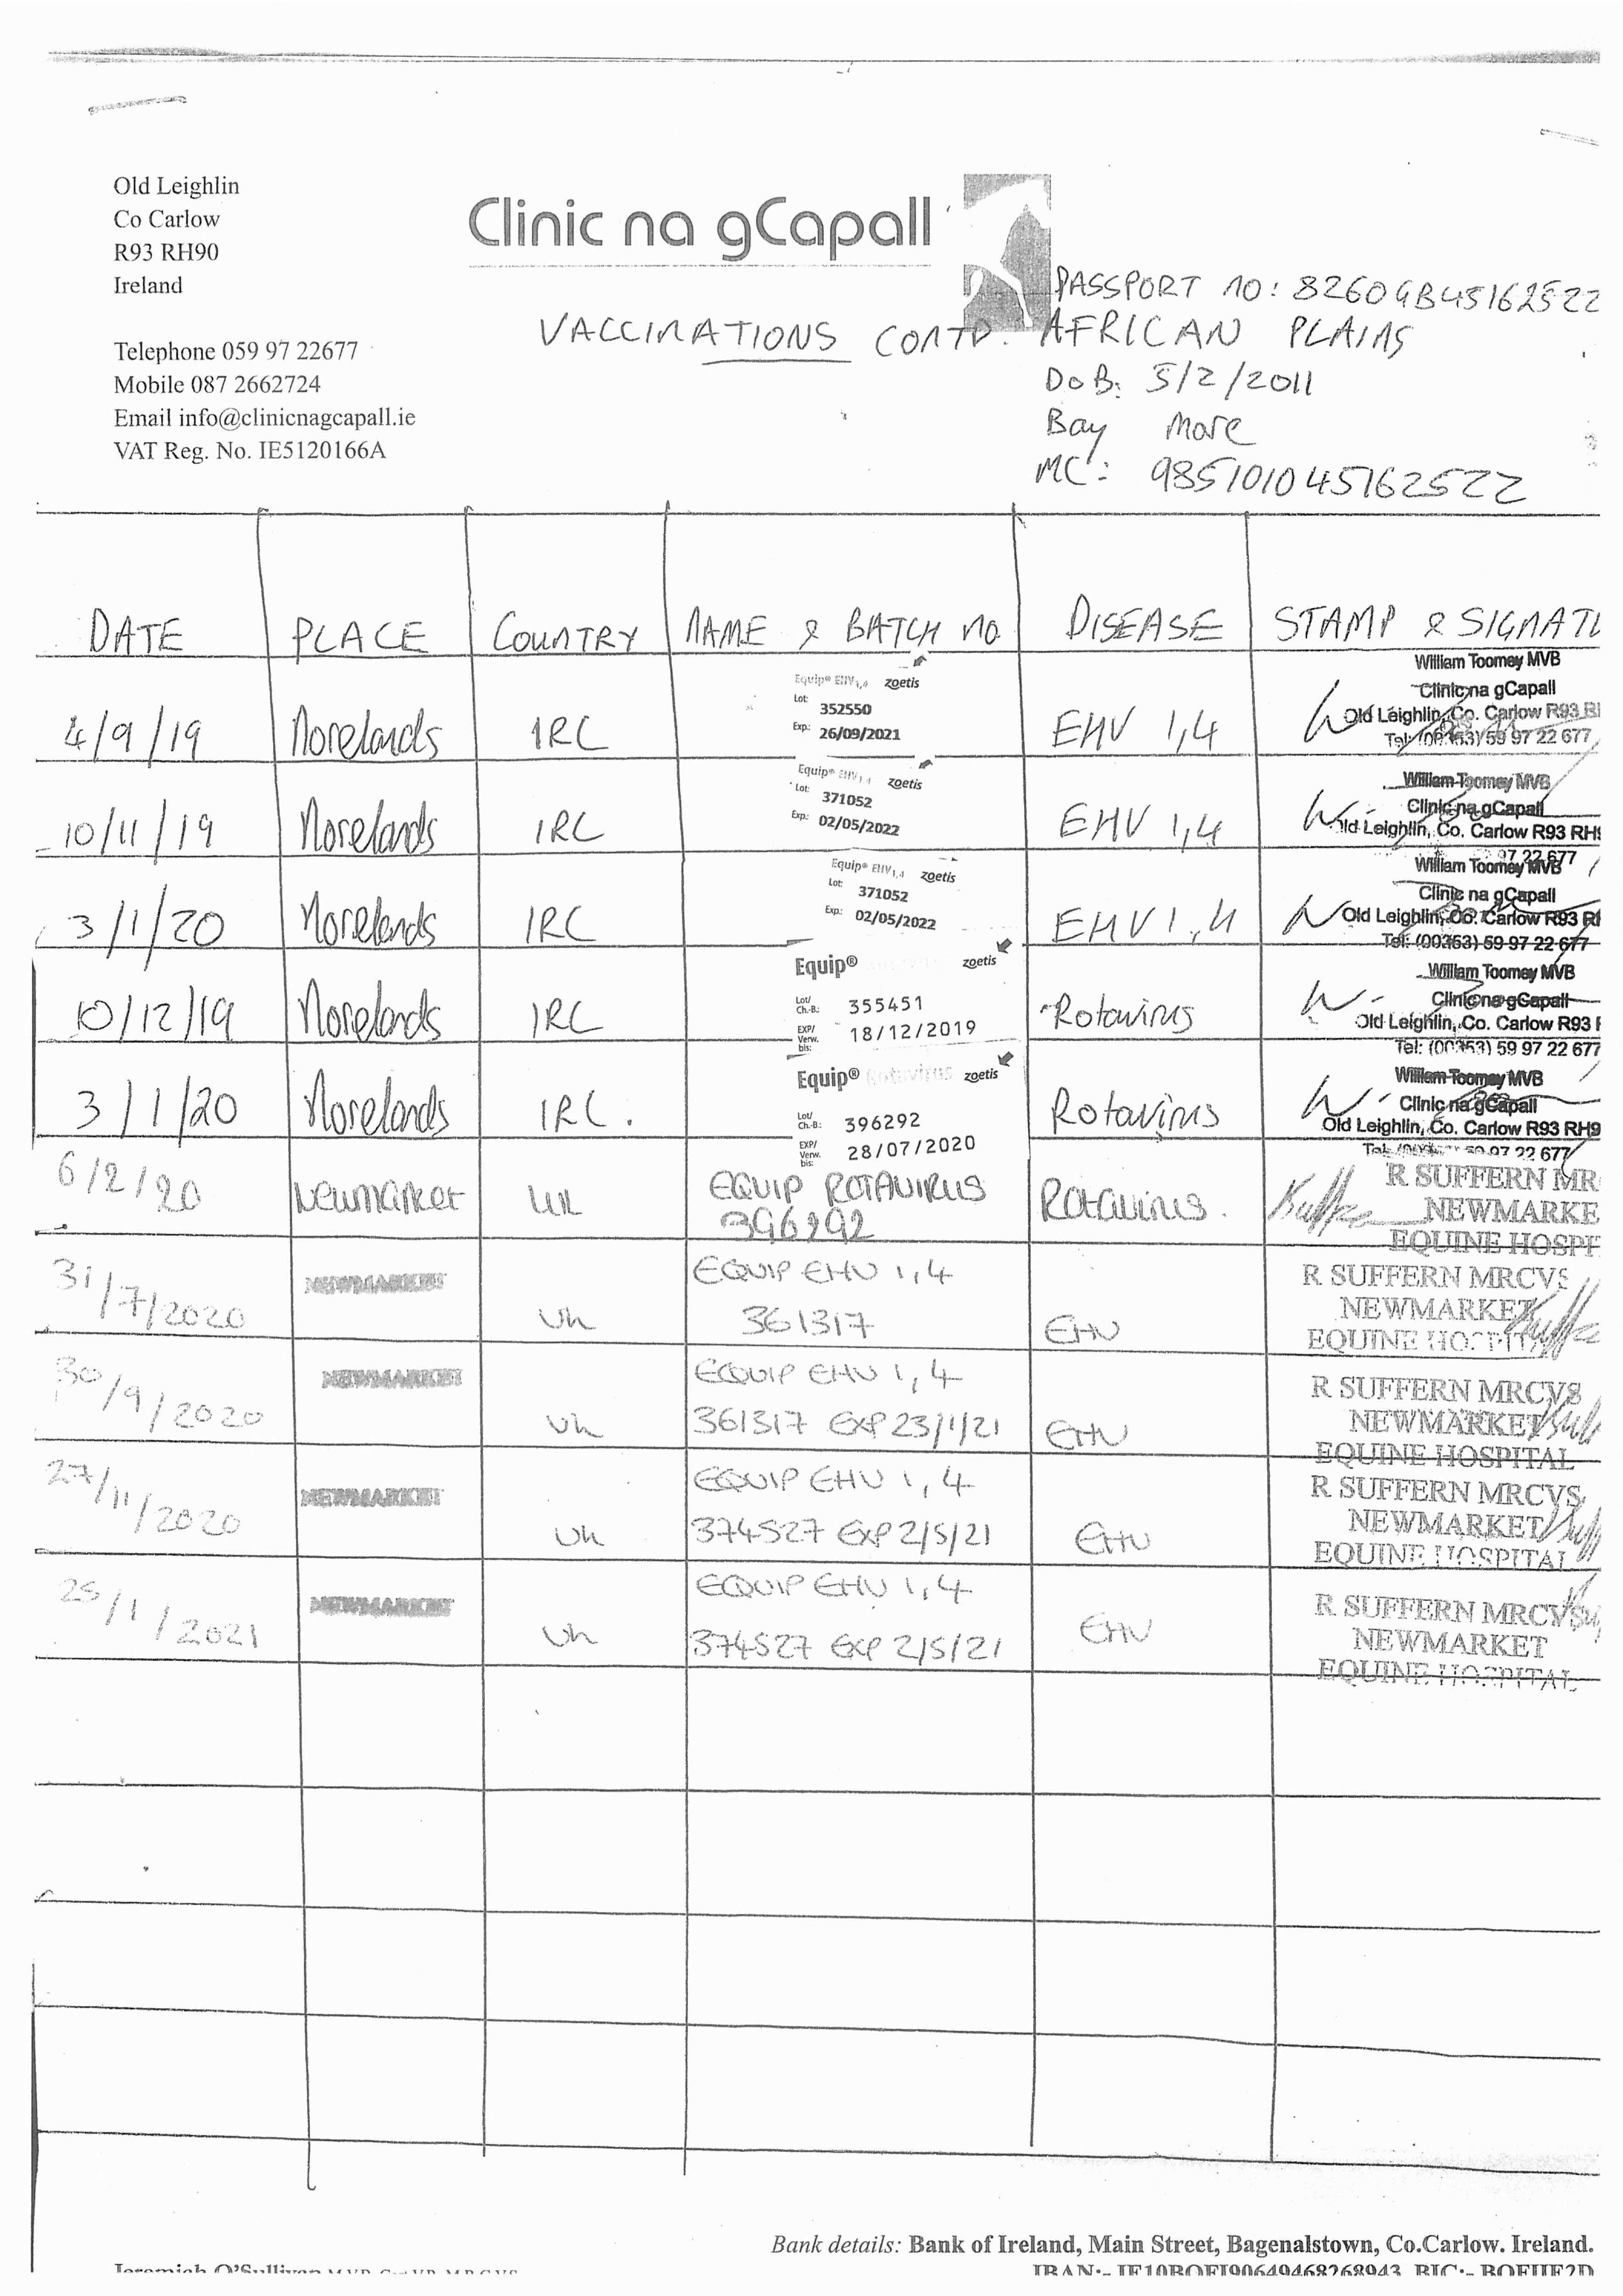 Old Leighlin
Co Carlow
R93 RH90
Ireland
Telephone 059 97 22677
Mobile 087 2662724
Email info@clinicnagcapall.ie
VAT Reg. No. IE5120166A
Clinic na gCapall
VACCINATIONS CONTD.
PASSPORT no: 8260GB45162522
AFRICAN PLAINS
DoB: 5/2/2011
Bay Mare
MC: 985101045162522
DATE PLACE COUNTRY NAME & BATCH no DISEASE STAMP & SIGNATU
4/9/19 Norelands IRE Equip® EHV 1,4 zoetis Lot: 352550 Exp: 26/09/2021 EHV 1,4 William Toomey MVB Clinic na gCapall Old Leighlin, Co. Carlow R93 Tel: (00353) 59 97 22 677
10/11/19 Norelands IRE Equip® EHV 1,4 zoetis Lot: 371052 Exp: 02/05/2022 EHV 1,4 William Toomey MVB Clinic na gCapall Old Leighlin, Co. Carlow R93 RH9 97 22 677
3/1/20 Norelands IRE Equip® EHV 1,4 zoetis Lot: 371052 Exp: 02/05/2022 EHV 1,4 William Toomey MVB Clinic na gCapall Old Leighlin, Co. Carlow R93 Tel: (00353) 59 97 22 677
10/12/19 Norelands IRE Equip® zoetis Lot/ Ch.-B.: 355451 EXP/ Verw. bis: 18/12/2019 Rotavirus William Toomey MVB Clinic na gCapall Old Leighlin, Co. Carlow R93 Tel: (00353) 59 97 22 677
3/1/20 Norelands IRE. Equip® Rotavirus zoetis Lot/ Ch.-B: 396292 EXP/ Verw. bis: 28/07/2020 Rotavirus William Toomey MVB Clinic na gCapall Old Leighlin, Co. Carlow R93 RH9 59 97 22 677
6/2/20 Newmarket UK EQUIP ROTAVIRUS 396292 Rotavirus. R SUFFERN MR NEWMARKE EQUINE HOSPI
31/7/2020 NEWMARKET Uk EQUIP EHV 1,4 361317 EHV R SUFFERN MRCVS NEWMARKET EQUINE HOSPITA
30/9/2020 NEWMARKET Uk EQUIP EHV 1,4 361317 EXP 23/1/21 EHV R SUFFERN MRCVS NEWMARKET EQUINE HOSPITAL
27/11/2020 NEWMARKET Uk EQUIP EHV 1,4 374527 EXP 2/5/21 EHV R SUFFERN MRCVS NEWMARKET EQUINE HOSPITAL
25/1/2021 NEWMARKET Uk EQUIP EHV 1,4 374527 EXP 2/5/21 EHV R SUFFERN MRCVS NEWMARKET EQUINE HOSPITAL
Bank details: Bank of Ireland, Main Street, Bagenalstown, Co.Carlow. Ireland.
Jeremiah O'Sullivan